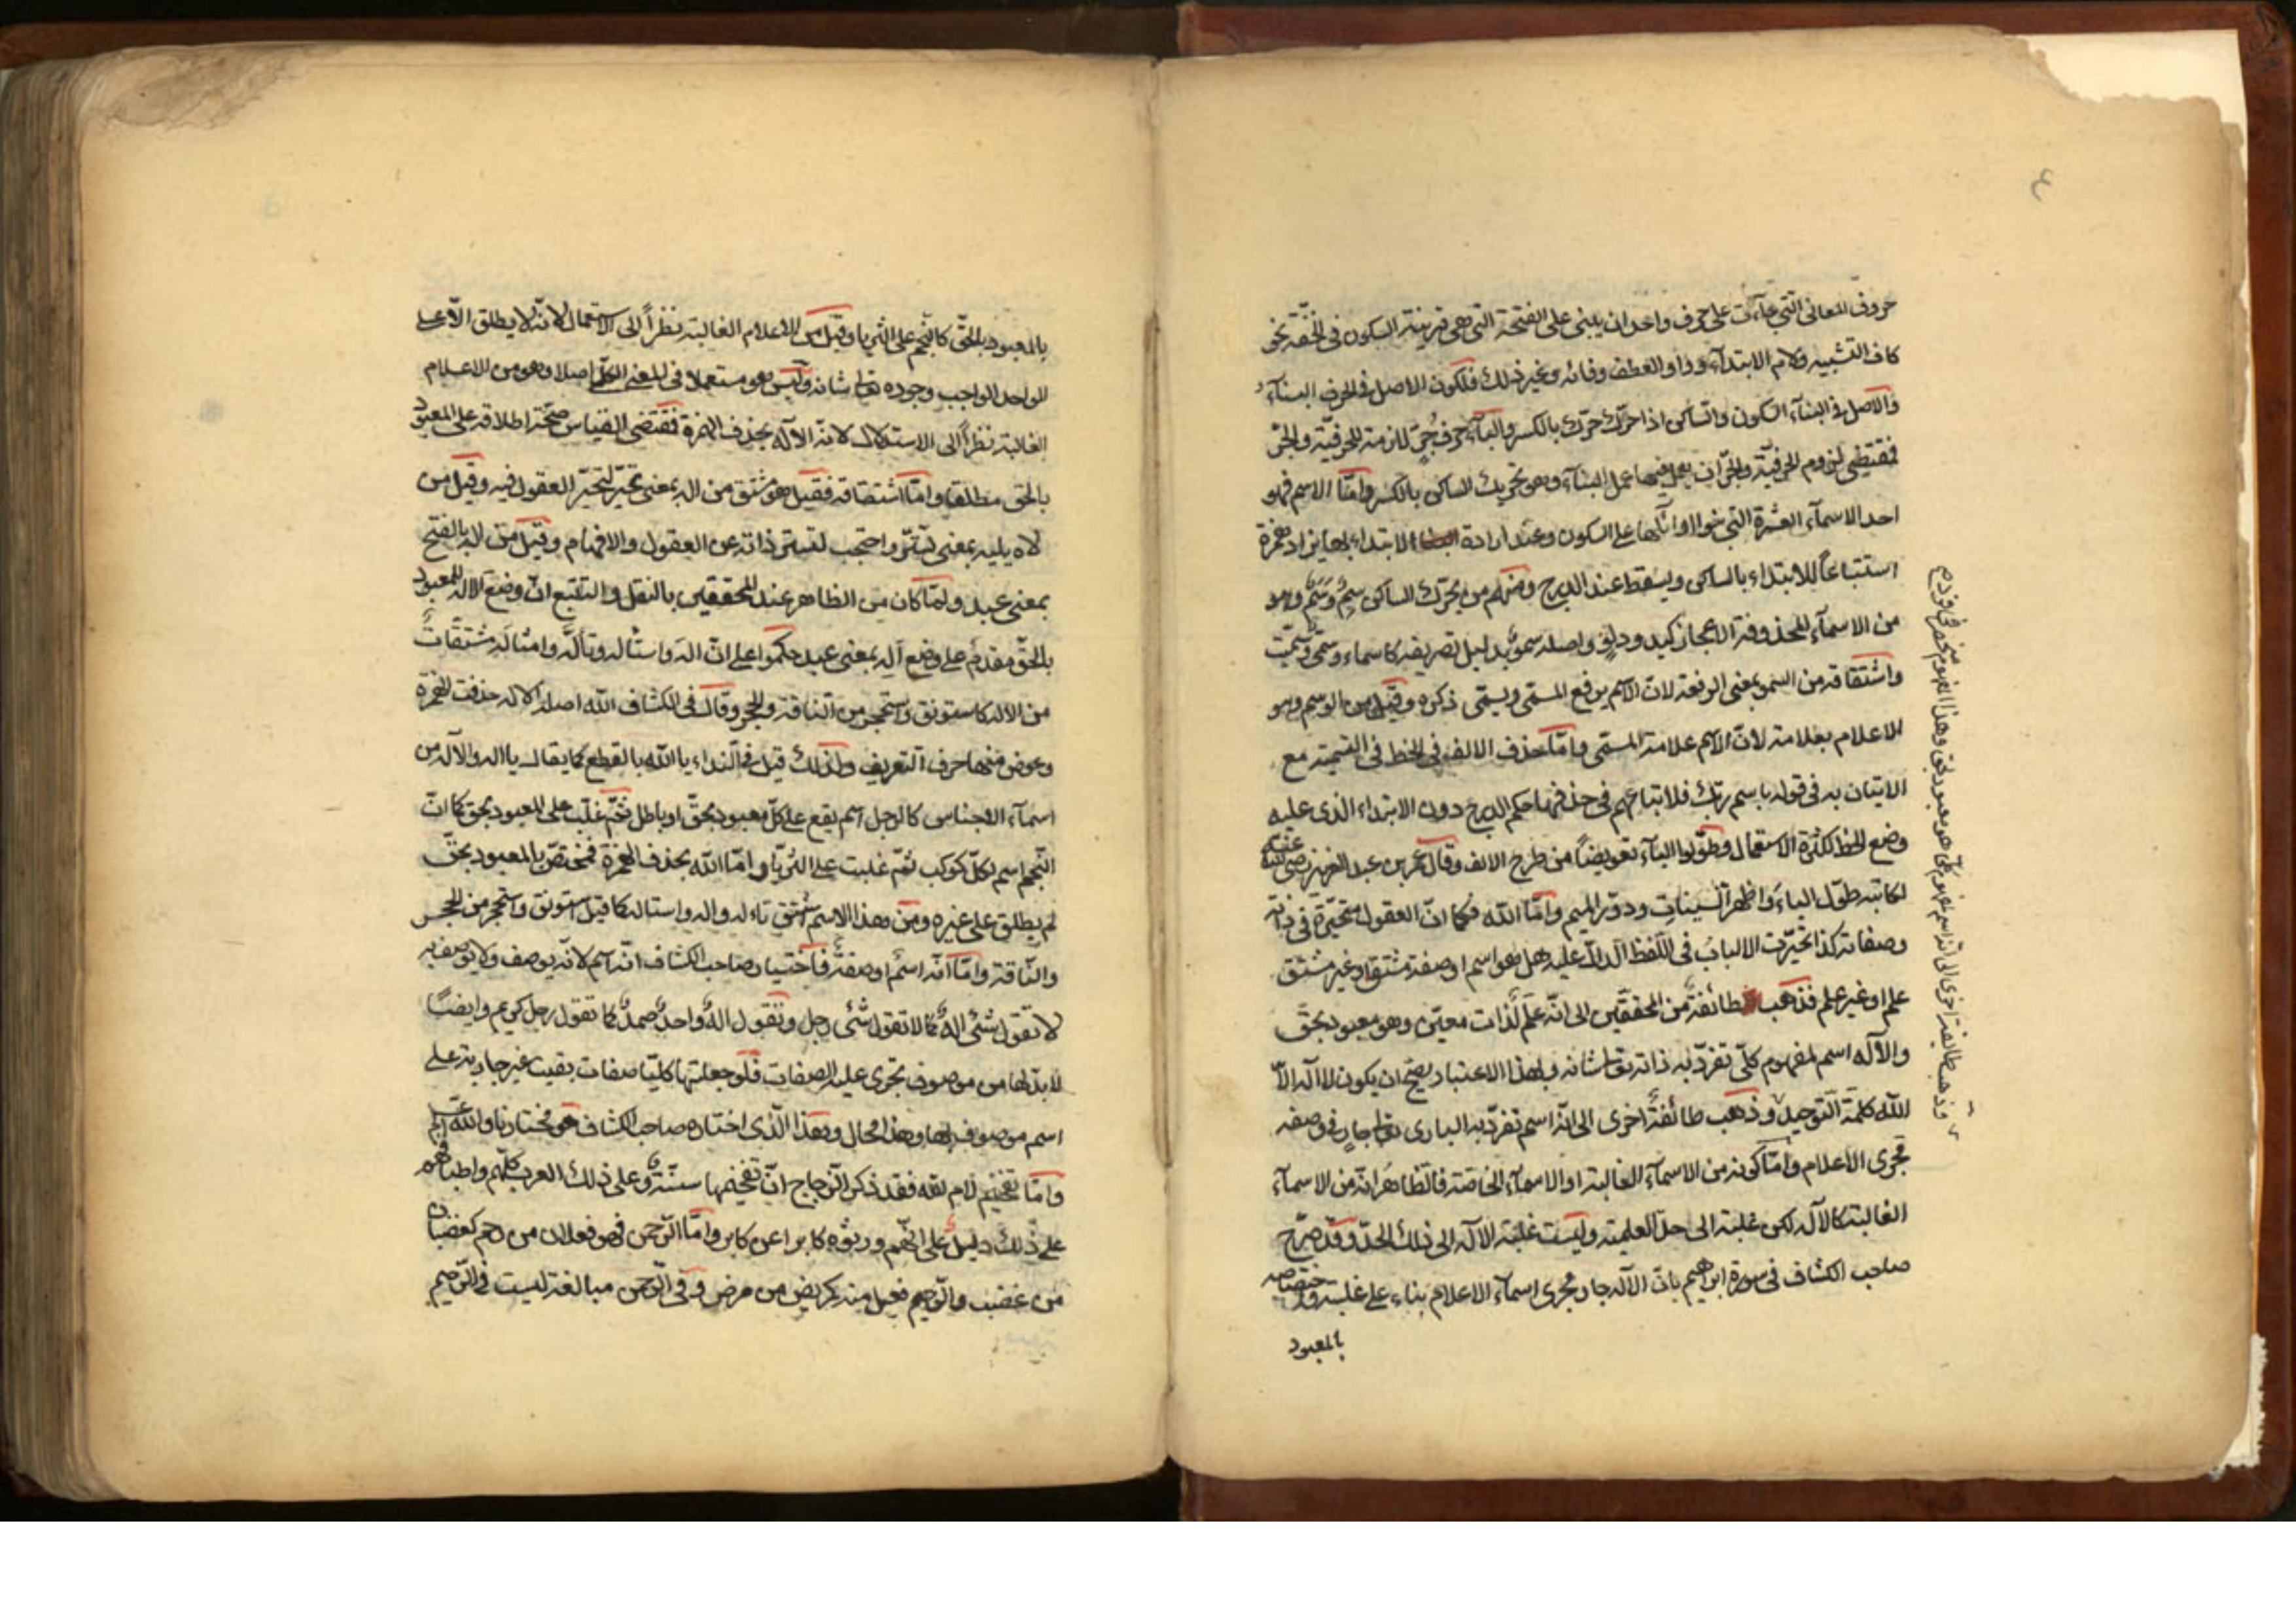 ٤
حروف المعانى الّتى جاءت على حرف واحد ان يبنى على الفتحة التى هى قرينة السكون فى الخفّة نحو
كاف التشبيه ولام الابتدآء وواو العطف وفائه وغير ذلك فلكون الاصل فى الحرف البنآء
والاصل فى البنآء السكون والساكن اذا حرّك حرّك بالكسر والبآء حرف جرّ لازمة للحرفيّة والجرّ
فقتضى لزوم الحرفيّة والجرّ ان يعمل فيها عمل البنآء وهو تحريك الساكن بالكسر وامّا الاسم فهو
احد الاسمآء العشرة التى بنوا اوائلها على السكون وعند ارادة الابتداء بها يزاد همزة
استتباعاً للابتداء بالساكن ويسقط عند الدرج ومنهم من يحرّك الساكن سِمٌ وسُمٌ وهو
من الاسمآء المحذوفة الاعجاز كيد ودم واصله سمو بدليل تصريفه كاسماء وسمّى وسمّيت
واشتقاقه من السمو بمعنى الرفعة لانّ الاسم يرفع المسمّى ويسمّى ذكره وقيل من الوسم وهو
الاعلام بعلامة لانّ الاسم علامة المسمّى وامّا حذف الالف فى الخط فى التسمية مع
الاتيان به فى قوله باسم ربّك فلاتباعهم فى حذفها حكم الدرج دون الابتداء الذى عليه
وضع الخط لكثرة الاستعمال وطوّلوا البآء تعويضاً من طرح الالف وقال عمر بن عبد العزيز رضى الله عنه
لكاتبه طوّل الباء واظهر السينات ودوّر الميم وامّا الله فكما انّ العقول متحيّرة فى ذاته
وصفاته كذا تحيّرت الالباب فى اللّفظ الدالّ عليه هل هو اسم او صفة مشتق او غير مشتق
علم او غير علم فذهب طائفة من المحققين الى انّه علم لذات معيّن وهو معبود بحقّ
والاله اسم لمفهوم كلّى تفرّد به ذاته تعالى شانه وبهذا الاعتبار يصحّ ان يكون لا اله الاّ
الله كلمة التوحيد وذهب طائفة اخرى الى انّه اسم تفرّد به البارى تعالى جار فى وصفه
مجرى الاعلام وامّا كونه من الاسمآء الغالبة او الاسمآء الخاصّة فالظاهر انّه من الاسمآء
الغالبة كالاله لكن غلبته الى حدّ العلمية وليست غلبة الاله الى ذلك الحدّ وقد صرّح
صاحب الكشاف فى سورة ابراهيم بانّ الاله جار مجرى اسمآء الاعلام بناء على غلبته واختصاصه
بالمعبود
وذهب طائفة اخرى الى انّه اسم لمفهوم كلّى هو معبود بحق وهذا المفهوم منحصر فى فرد
بالمعبود بالحقّ كالنجم على الثريا وقيل من الاعلام الغالبة نظراً الى الاستعمال لانّه لا يطلق الاّ على
الواحد الواجب وجوده تعالى شانه وليس هو مستعملا فى المعنى اصلا وهو من الاعلام
الغالبة نظراً الى الاستدلال لانّه الاله بحذف الهمزة فقتضى القياس صحّة اطلاقه على المعبود
بالحق مطلقا وامّا اشتقاقه فقيل هو مشتق من اله بمعنى تحيّر لتحيّر العقول فيه وقيل من
لاه يليه بمعنى تستّر واحتجب لتستّر ذاته عن العقول والافهام وقيل من اله بالفتح
بمعنى عبد ولمّا كان من الظاهر عند المحققين بالنقل والتتبّع انّ وضع الاله للمعبود
بالحقّ مقدّم على وضع اله بمعنى عبد حكموا على انّ اله واستاله وتألّه وامثاله مشتقّات
من الاله كاستونق واستحجر من الناقة والحجر وقال فى الكشاف الله اصله الاله حذفت الهمزة
وعوض منها حرف التعريف ولذلك قيل فى النداء يا الله بالقطع كما يقال يا اله والاله من
اسمآء الاجناس كالرجل اسم يقع على كلّ معبود بحقّ او باطل ثم غلّب على المعبود بحق كما انّ
النّجم اسم لكلّ كوكب ثمّ غلبت على الثريّا وامّا الله بحذف الهمزة فمختصّ بالمعبود بحقّ
لم يطلق على غيره ومن هذا الاسم اشتقّ تاله واله واستاله كما قيل استونق واستحجر من الحجر
والنّاقة وامّا انّه اسم او صفة فاختيار صاحب الكشاف انّه اسم لانّه يوصف ولا يوصف به
لا تقول شئ اله كما لا تقول شئ رجل وتقول اله واحد صمد كما تقول رجل كريم وايضاً
لا بدّ لها من موصوف تجرى عليه الصفات فلو جعلتها كلّها صفات بقيت غير جارية على
اسم موصوف بها وهذا محال وهذا الّذى اختاره صاحب الكشاف هو مختارنا والله اعلم
وامّا تفخيم لام الله فقد ذكر الزجاج انّ تفخيمها سنّة وعلى ذلك العرب كلّهم واطباقهم
على ذلك دليل على انّهم ورثوه كابرا عن كابر وامّا الرّحمن فهو فعلان من رحم كغضبان
من غضب والرّحيم فعيل منه كمريض من مرض وفى الرّحمن مبالغة ليست فى الرّحيم